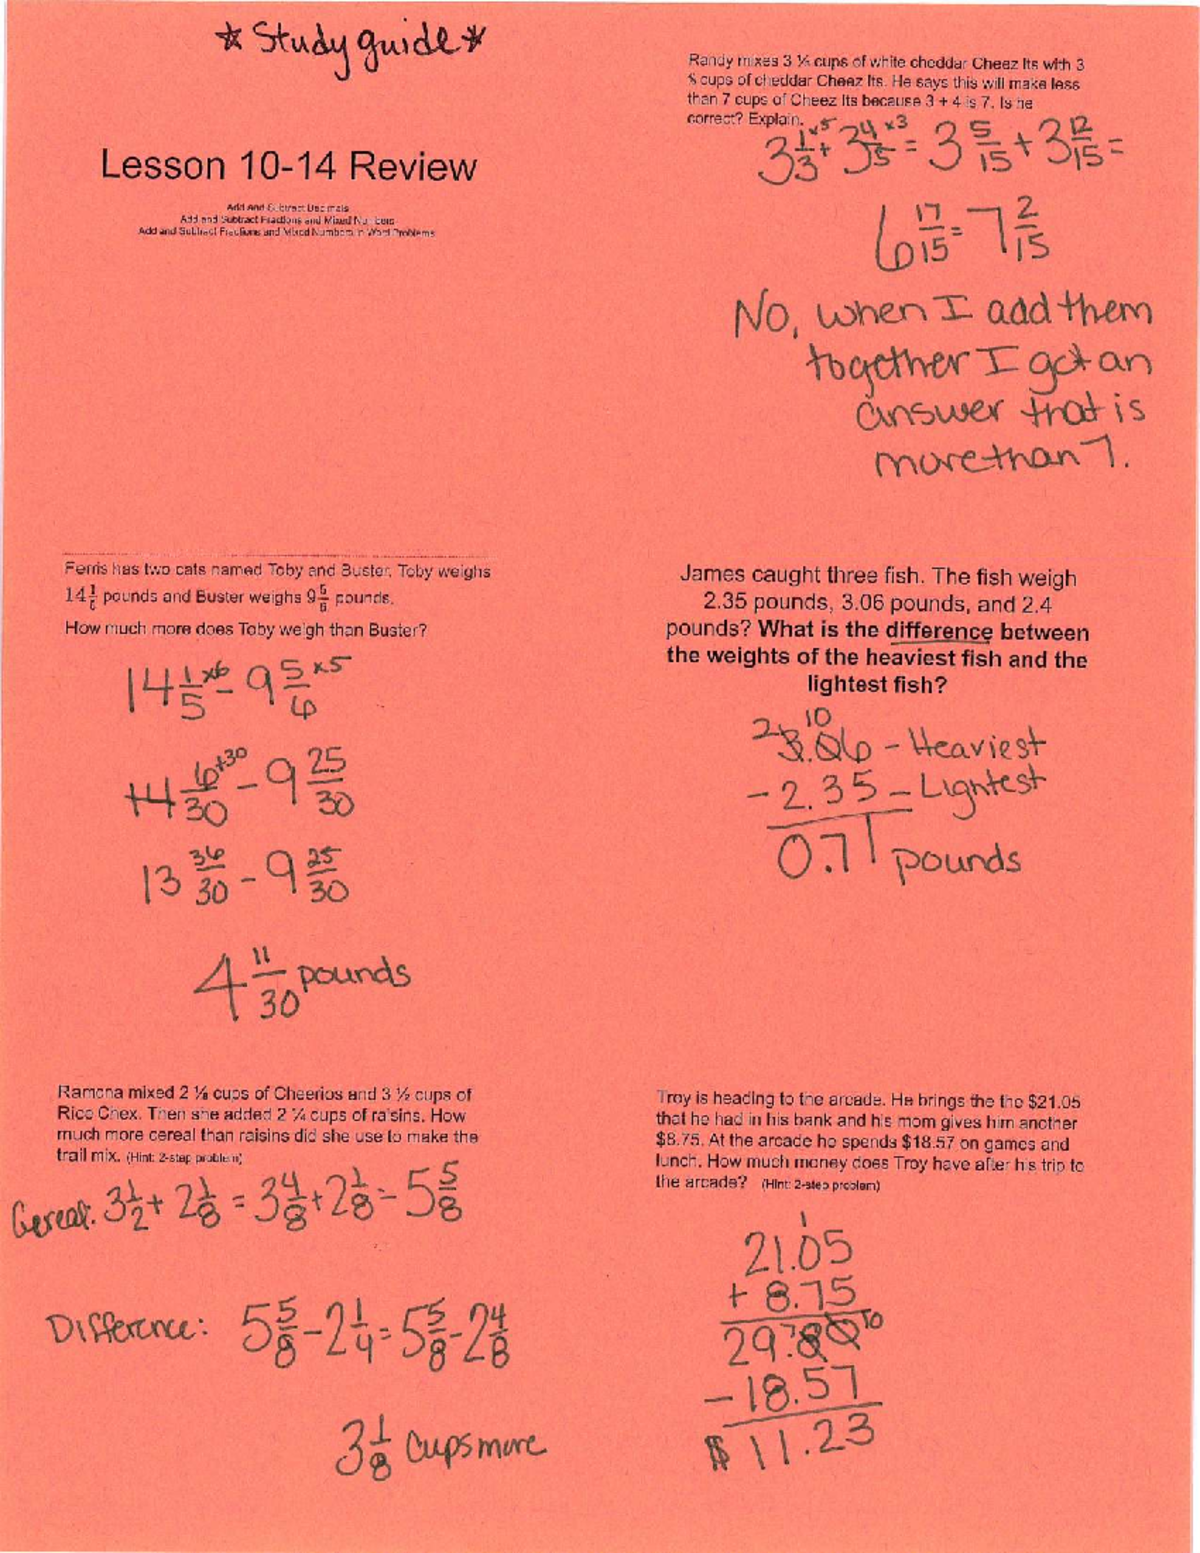 * Study guide *
Lesson 10-14 Review
Add and Subtract Decimals
Add and Subtract Fractions and Mixed Numbers
Add and Subtract Fractions and Mixed Numbers in Word Problems
Randy mixes 3 ⅓ cups of white cheddar Cheez Its with 3
⅘ cups of cheddar Cheez Its. He says this will make less
than 7 cups of Cheez Its because 3 + 4 is 7. Is he
correct? Explain.
3 1/3 ×5 + 3 4/5 ×3 = 3 5/15 + 3 12/15 =
6 17/15 = 7 2/15
No, when I add them
together I got an
answer that is
more than 7.
Ferris has two cats named Toby and Buster. Toby weighs
14 1/5 pounds and Buster weighs 9 5/6 pounds.
How much more does Toby weigh than Buster?
14 1/5 ×6 - 9 5/6 ×5
14 6/30 +30 - 9 25/30
13 36/30 - 9 25/30
4 11/30 pounds
James caught three fish. The fish weigh
2.35 pounds, 3.06 pounds, and 2.4
pounds? What is the difference between
the weights of the heaviest fish and the
lightest fish?
2 10
3.06 - Heaviest
- 2.35 - Lightest
0.71 pounds
Ramona mixed 2 ⅛ cups of Cheerios and 3 ½ cups of
Rice Chex. Then she added 2 ¼ cups of raisins. How
much more cereal than raisins did she use to make the
trail mix. (Hint: 2-step problem)
Cereal: 3 1/2 + 2 1/8 = 3 4/8 + 2 1/8 = 5 5/8
Difference: 5 5/8 - 2 1/4 = 5 5/8 - 2 4/8
3 1/8 cups more
Troy is heading to the arcade. He brings the the $21.05
that he had in his bank and his mom gives him another
$8.75. At the arcade he spends $18.57 on games and
lunch. How much money does Troy have after his trip to
the arcade? (Hint: 2-step problem)
1
21.05
+ 8.75
29.80 7 10
- 18.57
$ 11.23